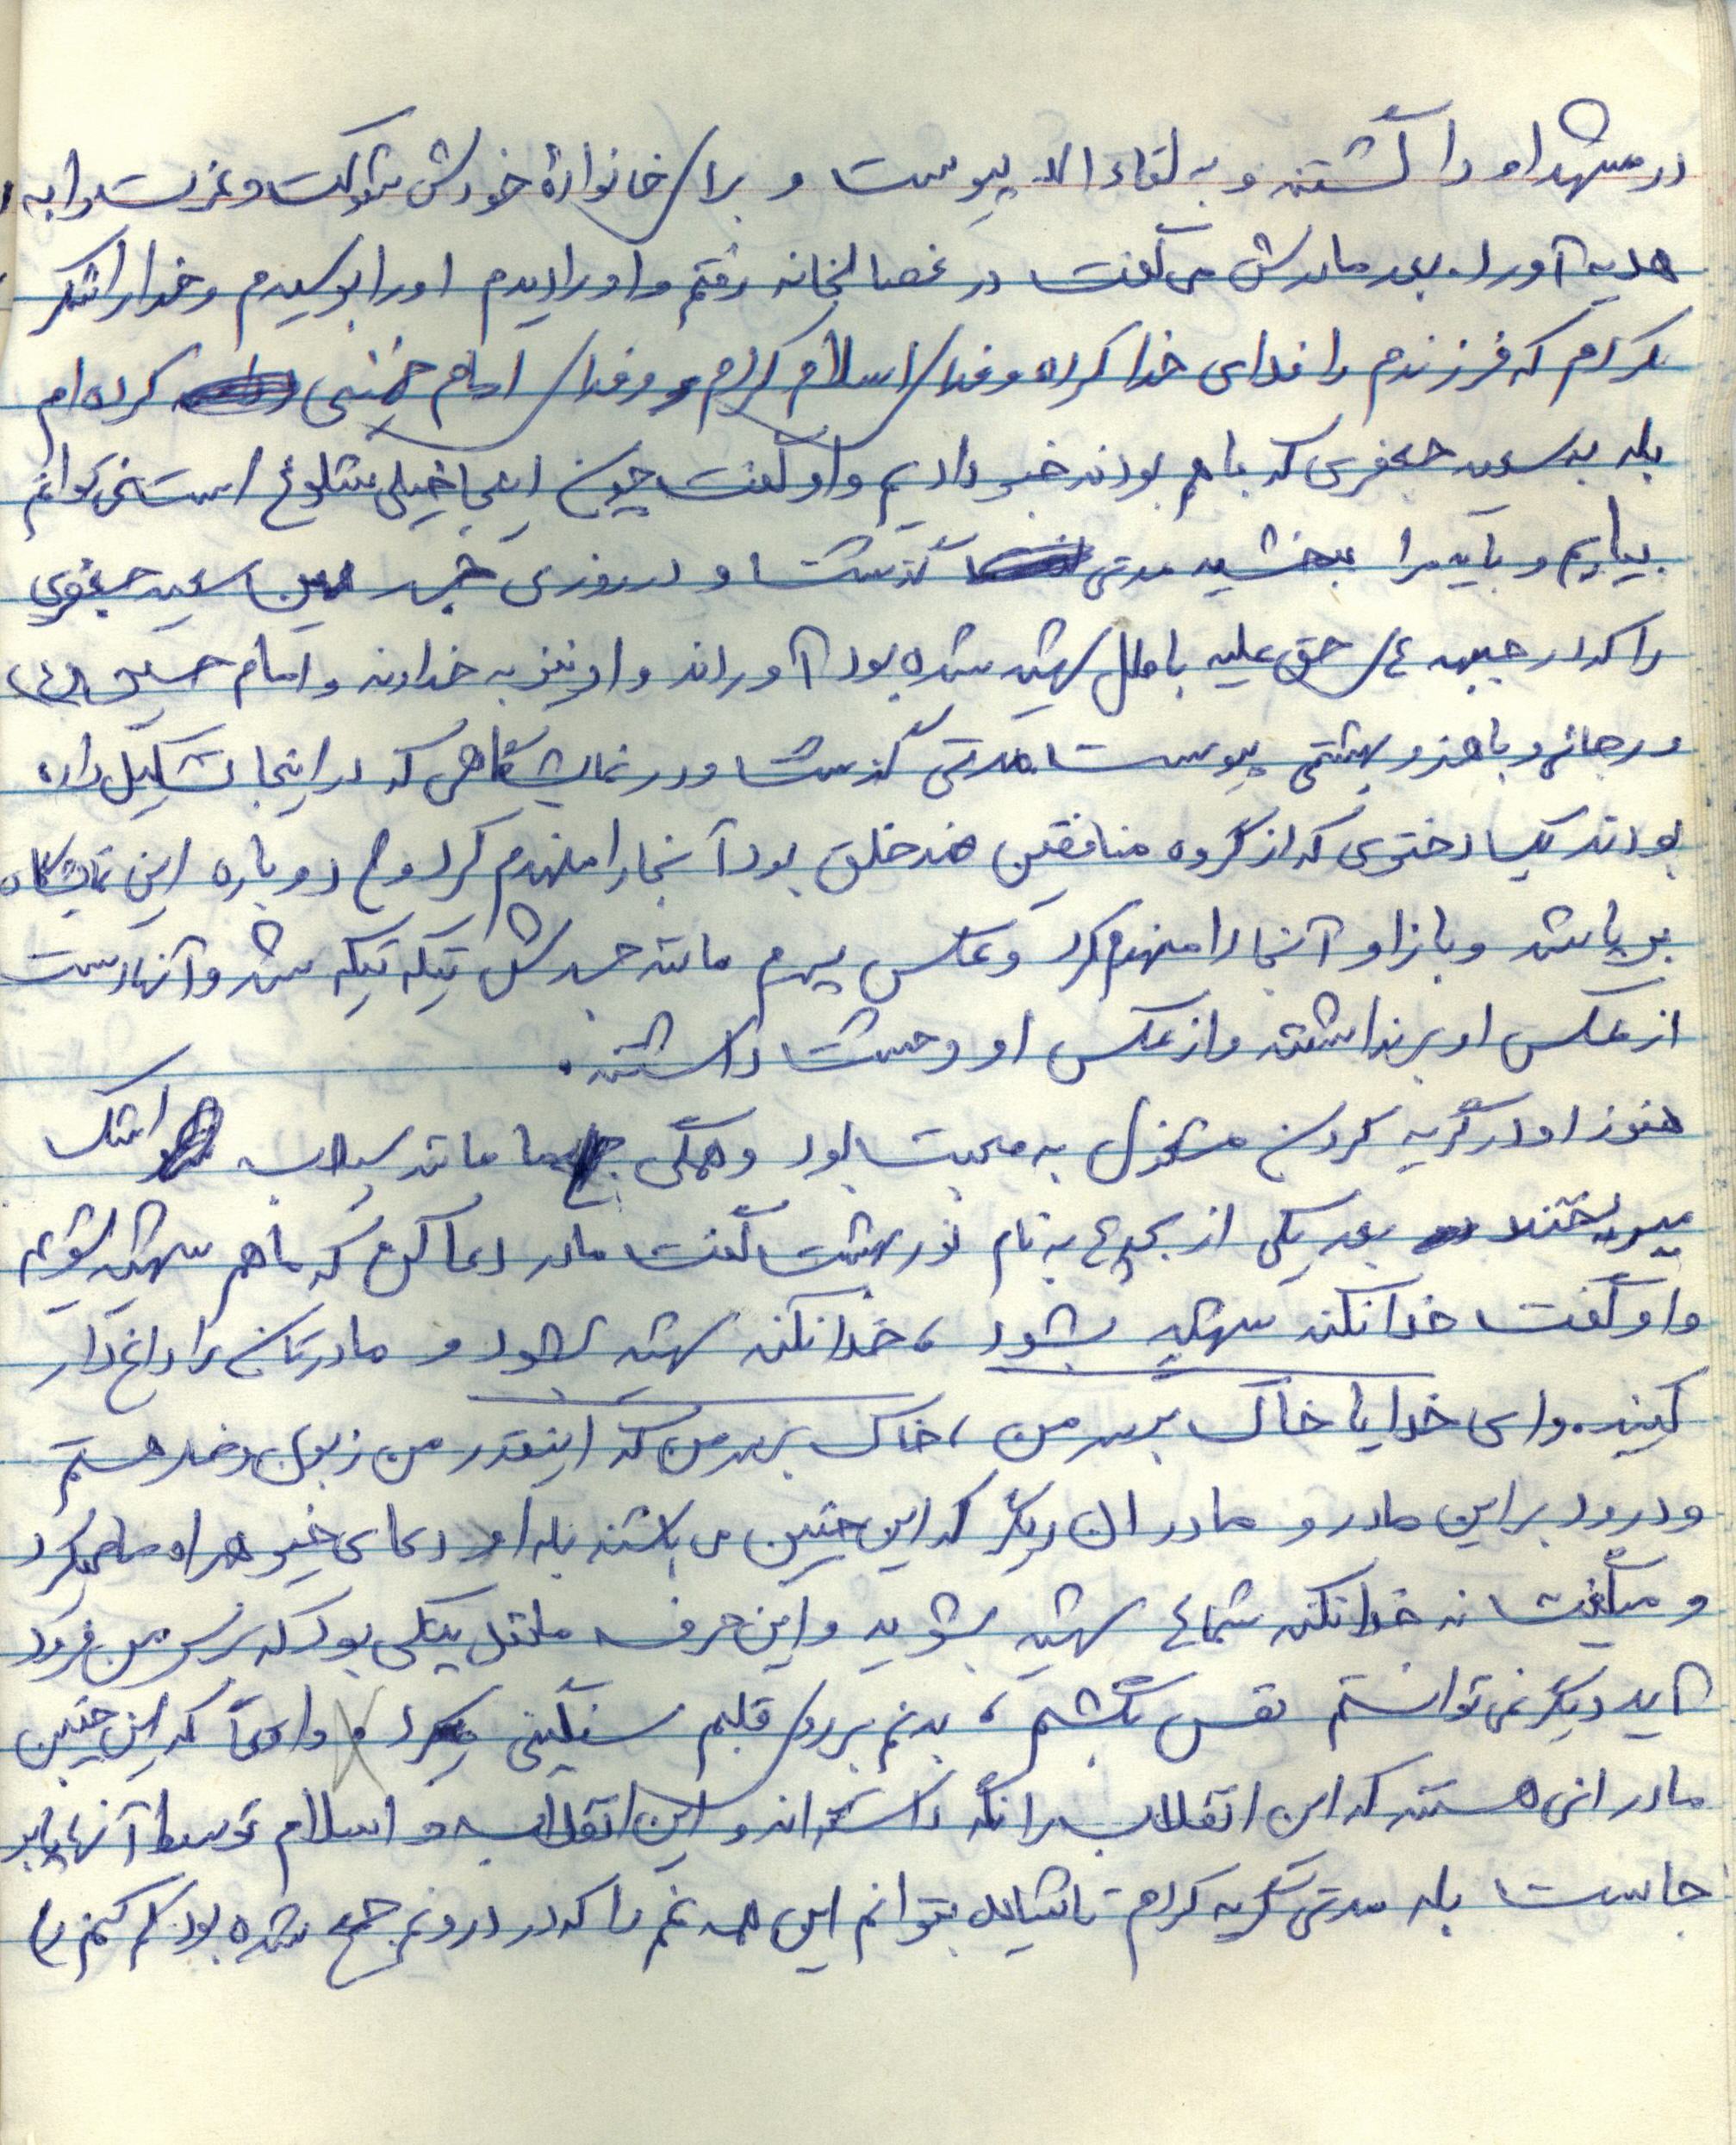 در مشهد او را کشتند و به لقاء الله پیوست و برای خانوادهٔ خودش شوکت و عزت را به
هدیه آورد. بعد مادرش می گفت در غصالخانه رفتم و او را دیدم او را بوسیدم و خدا را شکر
کردم که فرزندم را فدای خدا کرده و فدای اسلام کردم و فدای امام خمینی کرده ام
بله به سعید جعفری که با هم بودند خبر دادیم و او گفت چون اینجا خیلی شلوغ است نمی توانم
بیایم و باید مرا ببخشید مدتی گذشت و در روزی خبر سعید جعفری
را که در جبهه های حق علیه باطل شهید شده بود آوردند و او نیز به خداوند و امام حسین (ع)
و رجائی و باهنر و بهشتی پیوست مدتی گذشت و در نمایشگاهی که در اینجا تشکیل داده
بودند یک دختری که از گروه منافقین ضد خلق بود آنجا را منهدم کرد و دوباره این نمایشگاه
بر پا شد و باز او آنجا را منهدم کرد و عکس پسرم مانند جسدش تیکه تیکه شد و آنها دست
از عکس او برنداشتند و از عکس او وحشت داشتند.
هنوز او در گریه کردن مشغول به صحبت بود و همگی ما مانند سیلاب اشک
میریختند بعد یکی از بچه ها به نام نوربهشت گفت مادر دعا کن که ما هم شهید شویم
و او گفت خدا نکند شهید بشود، خدا نکند شهید بشود و مادرتان را داغدار
کنید. وای خدایا خاک بر سر من، خاک بر سر من که اینقدر من زبون و هستم
و درود بر این مادر و مادران دیگر که این چنین می باشند بله او دعای خیر همراه ما میکرد
و میگفت نه خدا نکند شما ها شهید بشوید و این حرف مثل پتکی بود که بر سر من فرود
آید دیگر نمی توانستم نفس بکشم، بدنم بر روی قلبم سنگینی میکرد و واقعاً که این چنین
مادرانی هستند که این انقلاب را نگه داشته اند و این انقلاب و اسلام توسط آنها پابر
جاست بله مدتی گریه کردم تا شاید بتوانم این همه غم را که در درونم جمع شده بود کم کنم